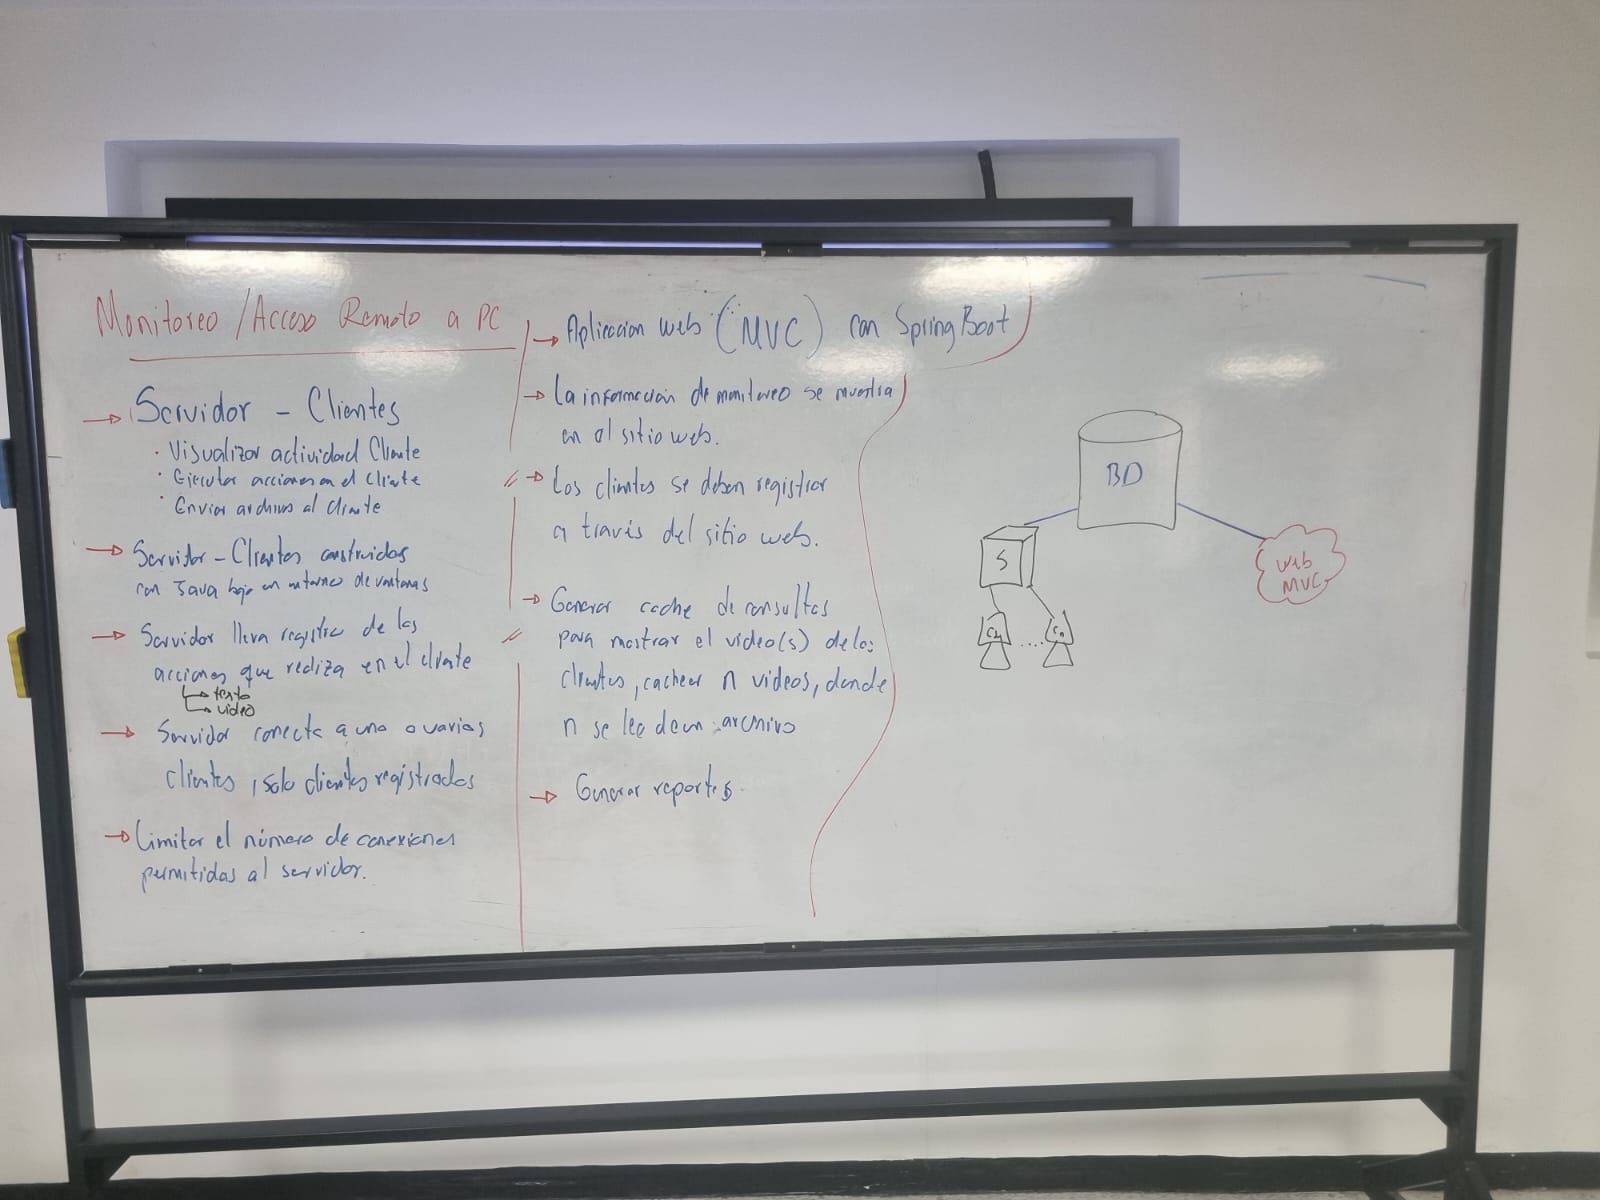 Monitoreo / Acceso Remoto a PC
→ Servidor - Clientes
· Visualizar actividad Cliente
· Ejecutar acciones en el cliente
· Enviar archivos al cliente
→ Servidor - Clientes construidos
con Java bajo un entorno de ventanas
→ Servidor lleva registro de las
acciones que realiza en el cliente
→ texto
→ video
→ Servidor conecta a uno o varios
clientes, solo clientes registrados
→ Limitar el número de conexiones
permitidas al servidor.
→ Aplicacion web (MVC) con Spring Boot
→ La información de monitoreo se muestra
en el sitio web.
→ Los clientes se deben registrar
a través del sitio web.
→ Generar cache de consultas
para mostrar el video(s) de los
clientes, cachear n videos, donde
n se lee de un archivo
→ Generar reportes
BD
S
web
MVC
C1 .... Cn